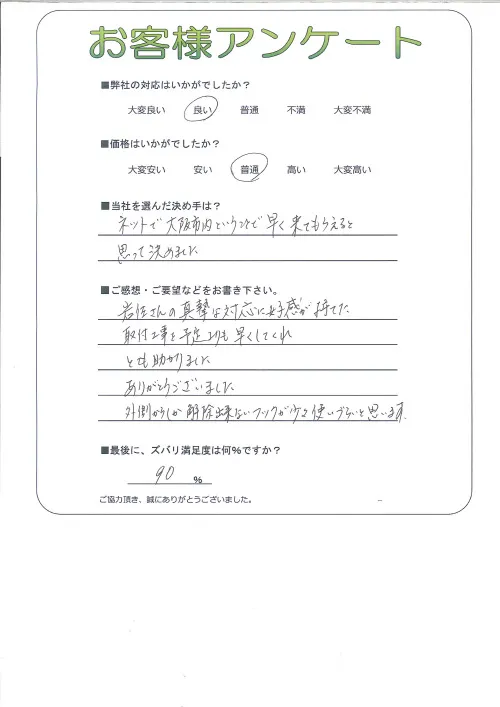 お客様アンケート
■弊社の対応はいかがでしたか？
大変良い 良い 普通 不満 大変不満
■価格はいかがでしたか？
大変安い 安い 普通 高い 大変高い
■当社を選んだ決め手は？
ネットで大阪市内ということで早く来てもらえると
思って決めました
■ご感想・ご要望などをお書き下さい。
岩佐さんの真摯な対応に好感が持てた
取付工事を予定よりも早くしてくれ
とても助かりました
ありがとうございました
外側からしか解除出来ないフックが少々使いづらいと思います.
■最後に、ズバリ満足度は何%ですか？
90 %
ご協力頂き、誠にありがとうございました。